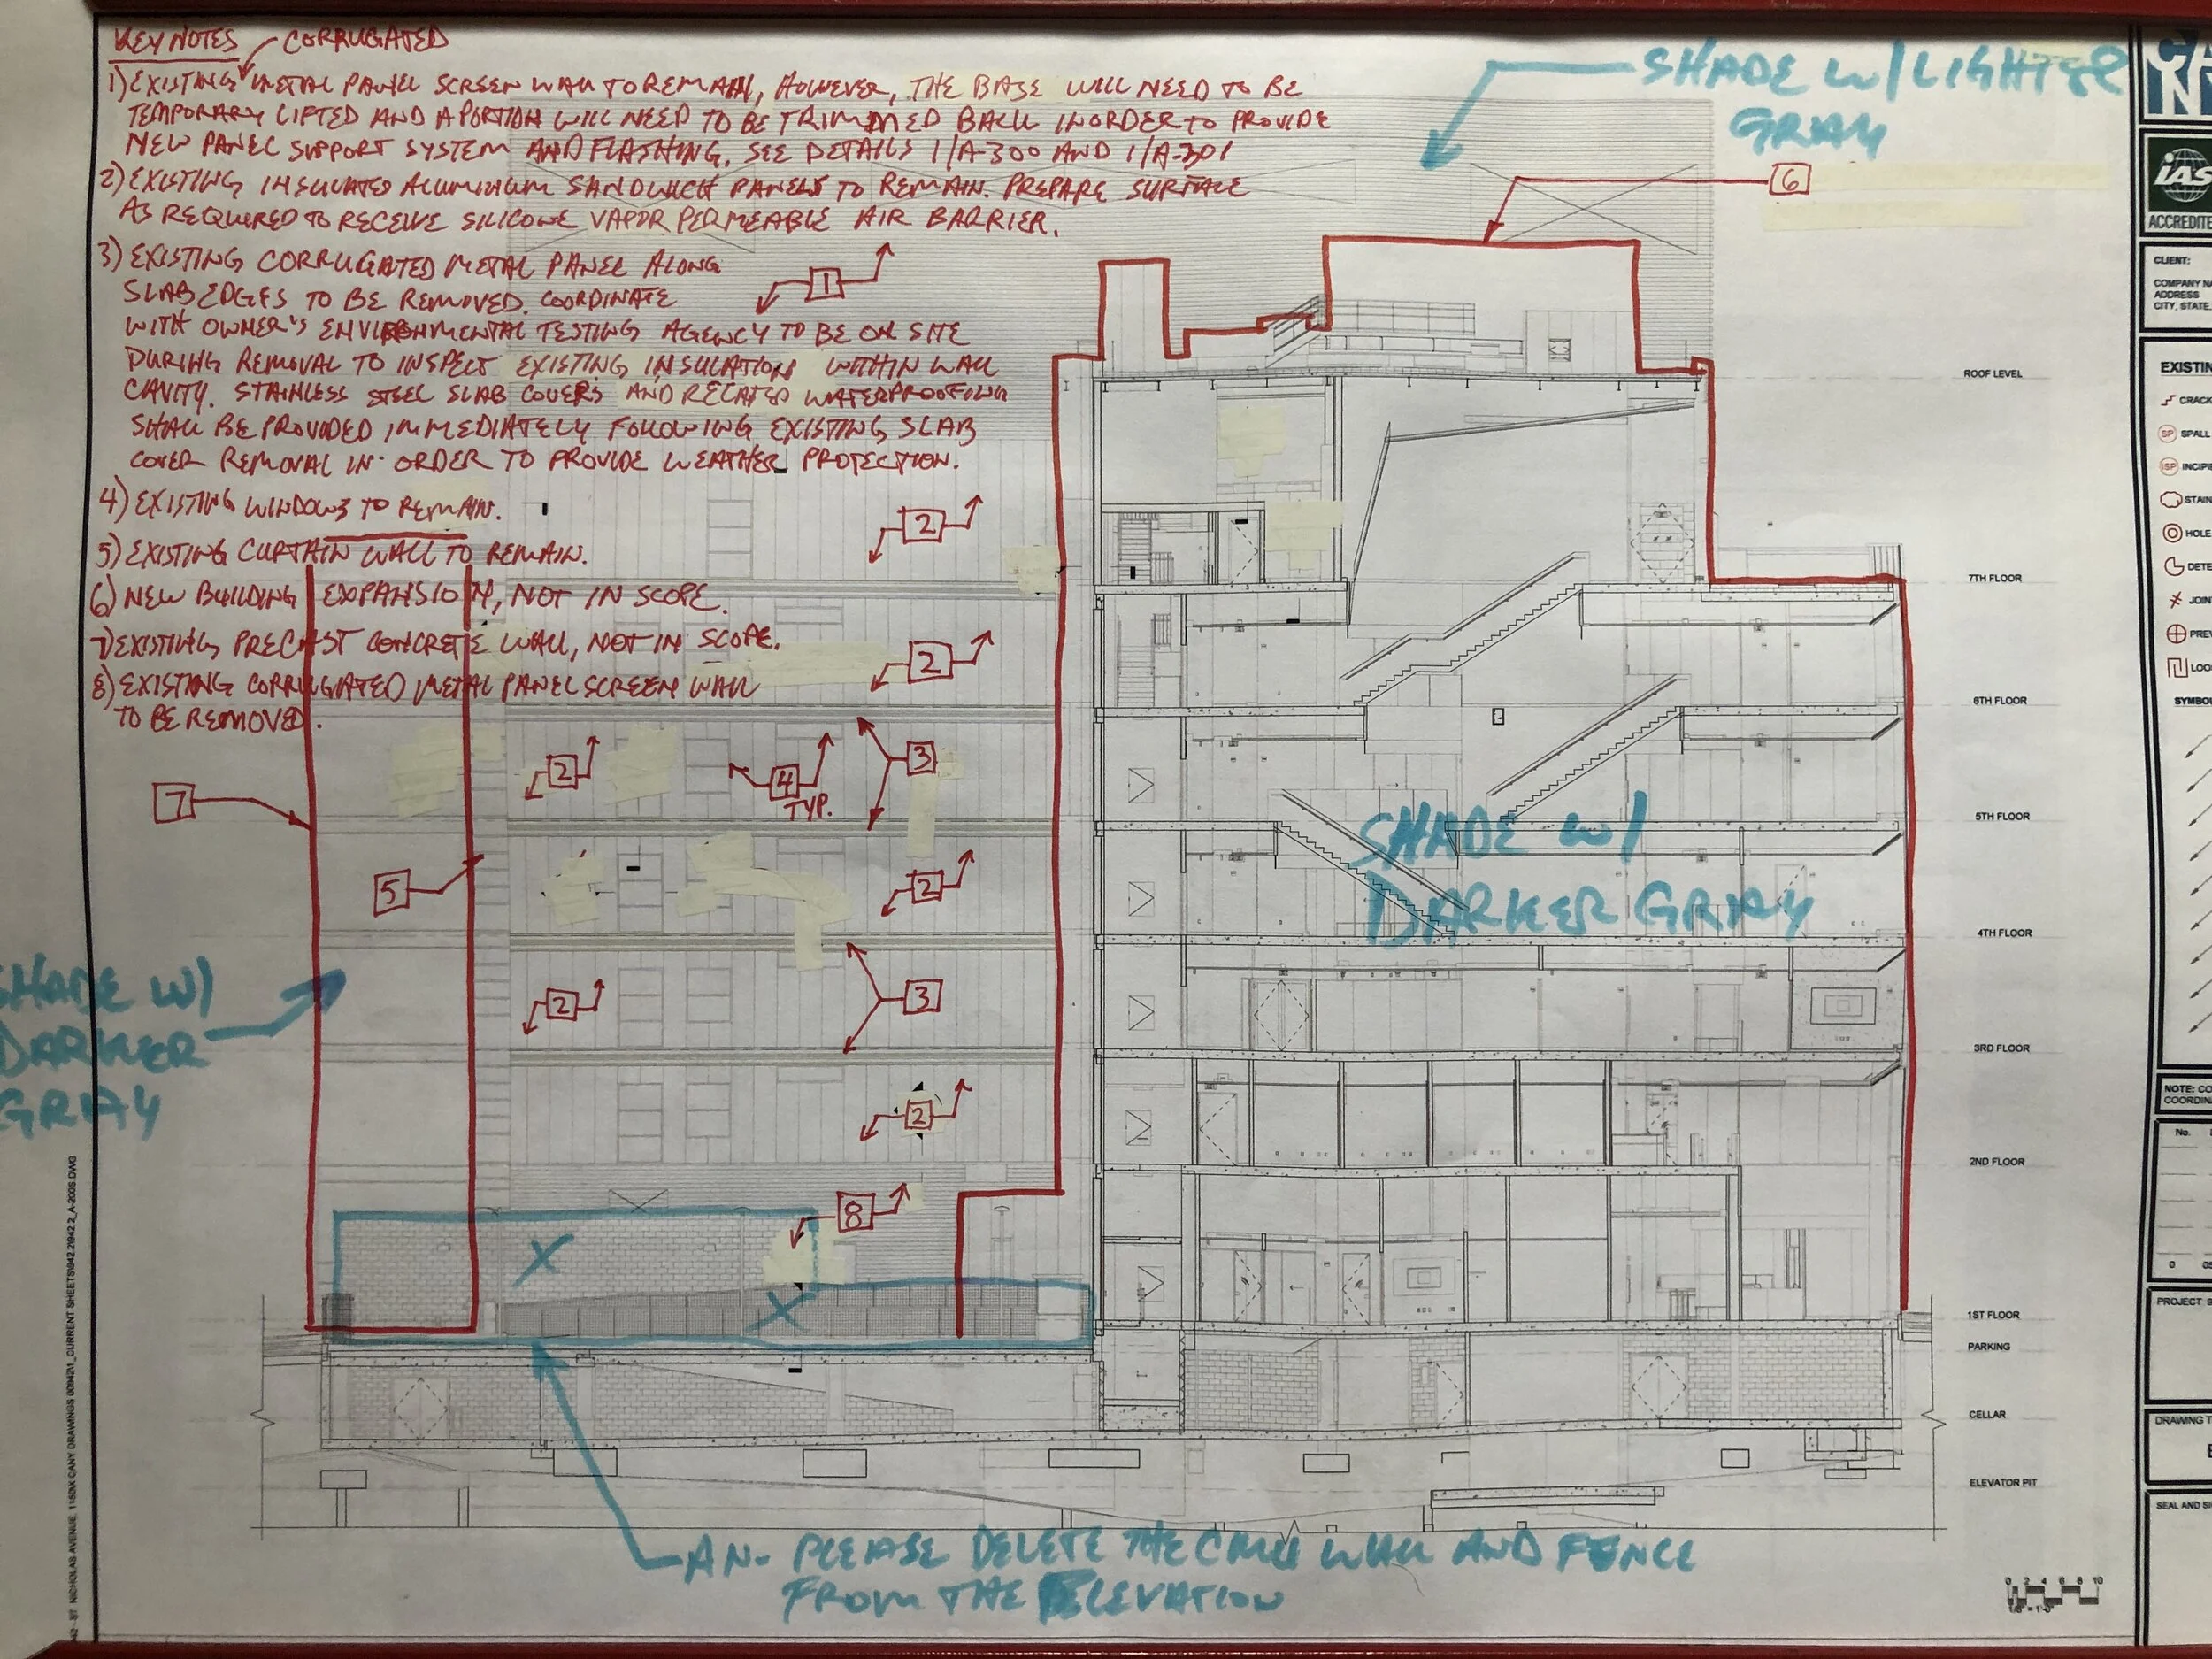 KEY NOTES
CORRUGATED
1) EXISTING METAL PANEL SCREEN WALL TO REMAIN, HOWEVER, THE BASE WILL NEED TO BE
TEMPORARY LIFTED AND A PORTION WILL NEED TO BE TRIMMED BACK IN ORDER TO PROVIDE
NEW PANEL SUPPORT SYSTEM AND FLASHING. SEE DETAILS 1/A-300 AND 1/A-301
2) EXISTING INSULATED ALUMINUM SANDWICH PANELS TO REMAIN. PREPARE SURFACE
AS REQUIRED TO RECEIVE SILICONE VAPOR PERMEABLE AIR BARRIER.
3) EXISTING CORRUGATED METAL PANEL ALONG
SLAB EDGES TO BE REMOVED. COORDINATE
WITH OWNER'S ENVIRONMENTAL TESTING AGENCY TO BE ON SITE
DURING REMOVAL TO INSPECT EXISTING INSULATION WITHIN WALL
CAVITY. STAINLESS STEEL SLAB COVERS AND RELATED WATERPROOFING
SHALL BE PROVIDED IMMEDIATELY FOLLOWING EXISTING SLAB
COVER REMOVAL IN ORDER TO PROVIDE WEATHER PROTECTION.
4) EXISTING WINDOWS TO REMAIN.
5) EXISTING CURTAIN WALL TO REMAIN.
6) NEW BUILDING EXPANSION, NOT IN SCOPE.
7) EXISTING PRECAST CONCRETE WALL, NOT IN SCOPE.
8) EXISTING CORRUGATED METAL PANEL SCREEN WALL
TO BE REMOVED.
SHADE W/ LIGHTER
GRAY
6
1
2
2
2
4
TYP.
3
7
5
2
2
3
2
8
SHADE W/
DARKER GRAY
SHADE W/
DARKER
GRAY
X
X
AN- PLEASE DELETE THE CMU WALL AND FENCE
FROM THE ELEVATION
ROOF LEVEL
7TH FLOOR
6TH FLOOR
5TH FLOOR
4TH FLOOR
3RD FLOOR
2ND FLOOR
1ST FLOOR
PARKING
CELLAR
ELEVATOR PIT
0 2 4 6 8 10
1/8" = 1'-0"
CA
NY
IAS
ACCREDITE
CLIENT:
COMPANY NA
ADDRESS
CITY, STATE,
EXISTIN
CRACK
SP SPALL
ISP INCIPIE
STAIN
HOLE
DETE
JOIN
PREV
LOO
SYMBOL
NOTE: CO
COORDINA
No.
0
PROJECT
DRAWING T
SEAL AND SI